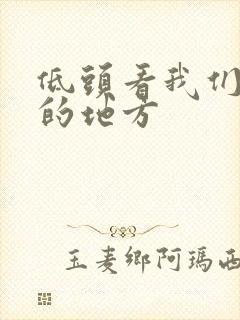 低頭看我们
的地方
玉麦鄉阿瑪西